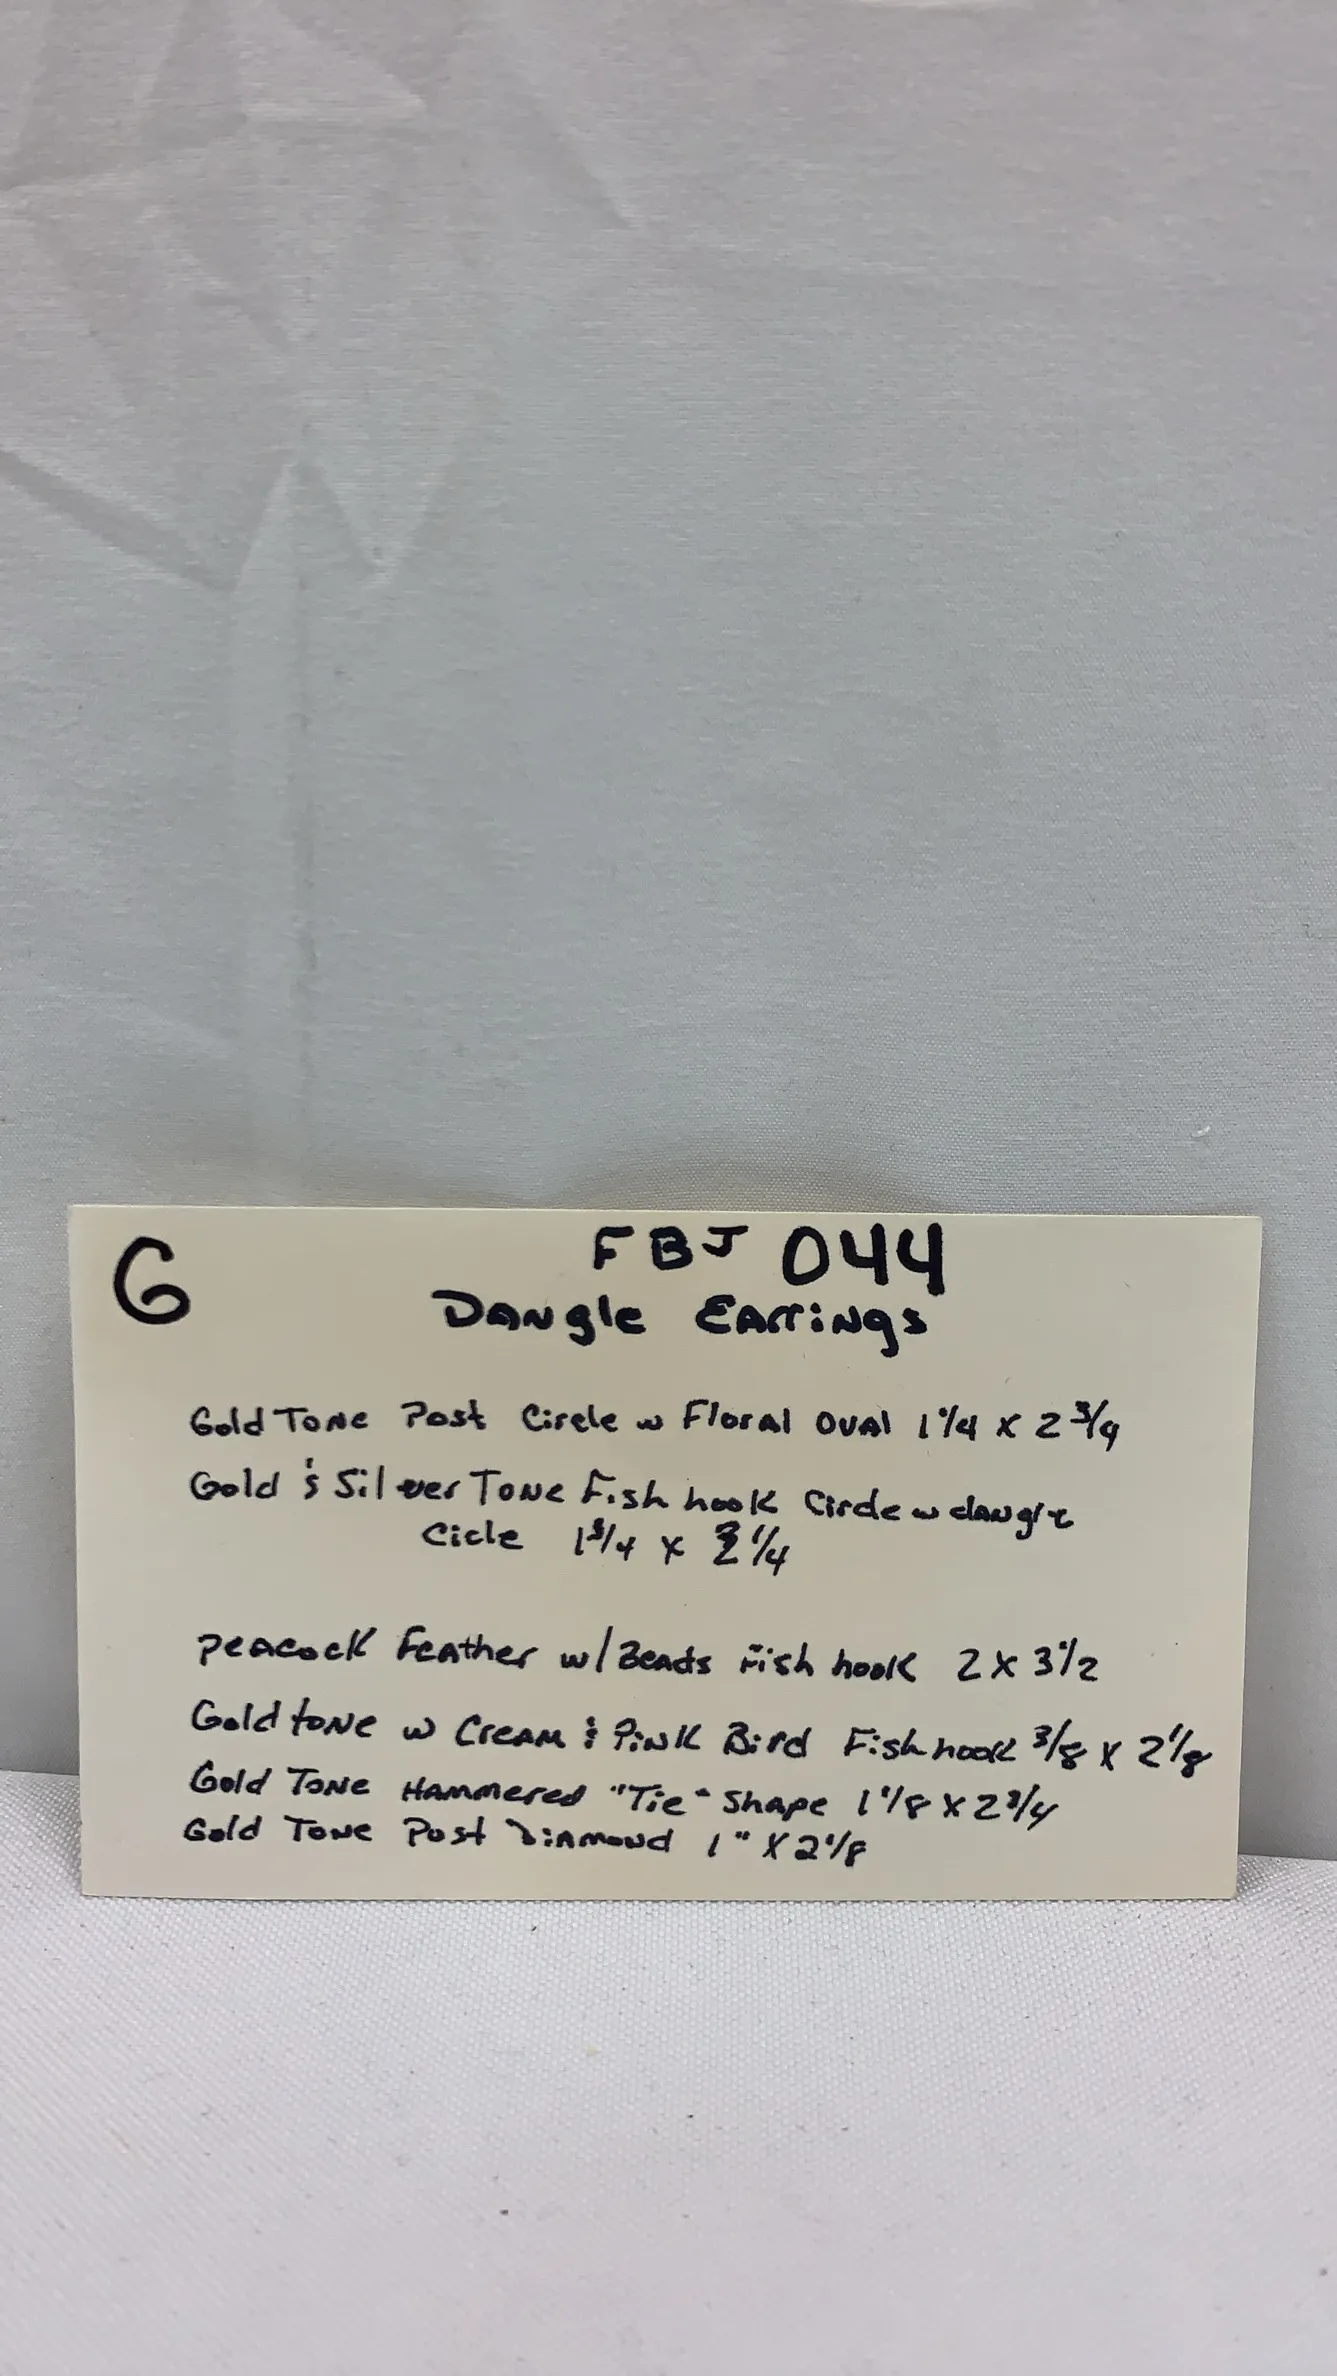 G
FBJ 044
Dangle Earrings
Gold Tone Post Circle w Floral Oval 1 1/4 x 2 3/4
Gold & Silver Tone Fish hook Circle w dangle
Cicle 1 3/4 x 2 1/4
Peacock Feather w/Beads Fish hook 2 x 3 1/2
Gold tone w Cream & Pink Bird Fish hook 3/8 x 2 1/8
Gold Tone Hammered "Tie" Shape 1 1/8 x 2 3/4
Gold Tone Post Diamond 1" x 2 1/8